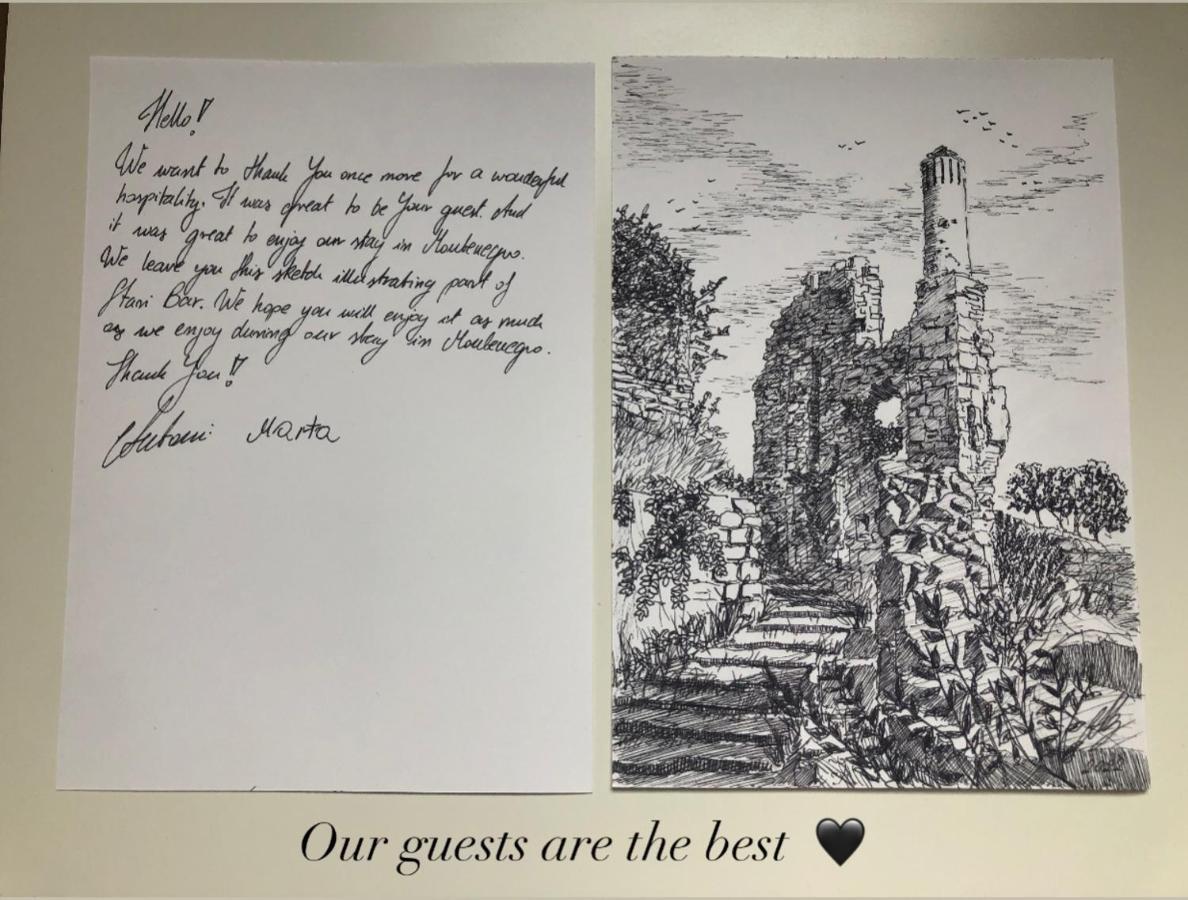 Hello!
We want to thank You once more for a wonderful
hospitality. It was great to be Your guest. And
it was great to enjoy our stay in Montenegro.
We leave you this sketch illustrating part of
Stari Bar. We hope you will enjoy it as much
as we enjoy during our stay in Montenegro.
Thank You!
Antoni Marta
Our guests are the best 🖤